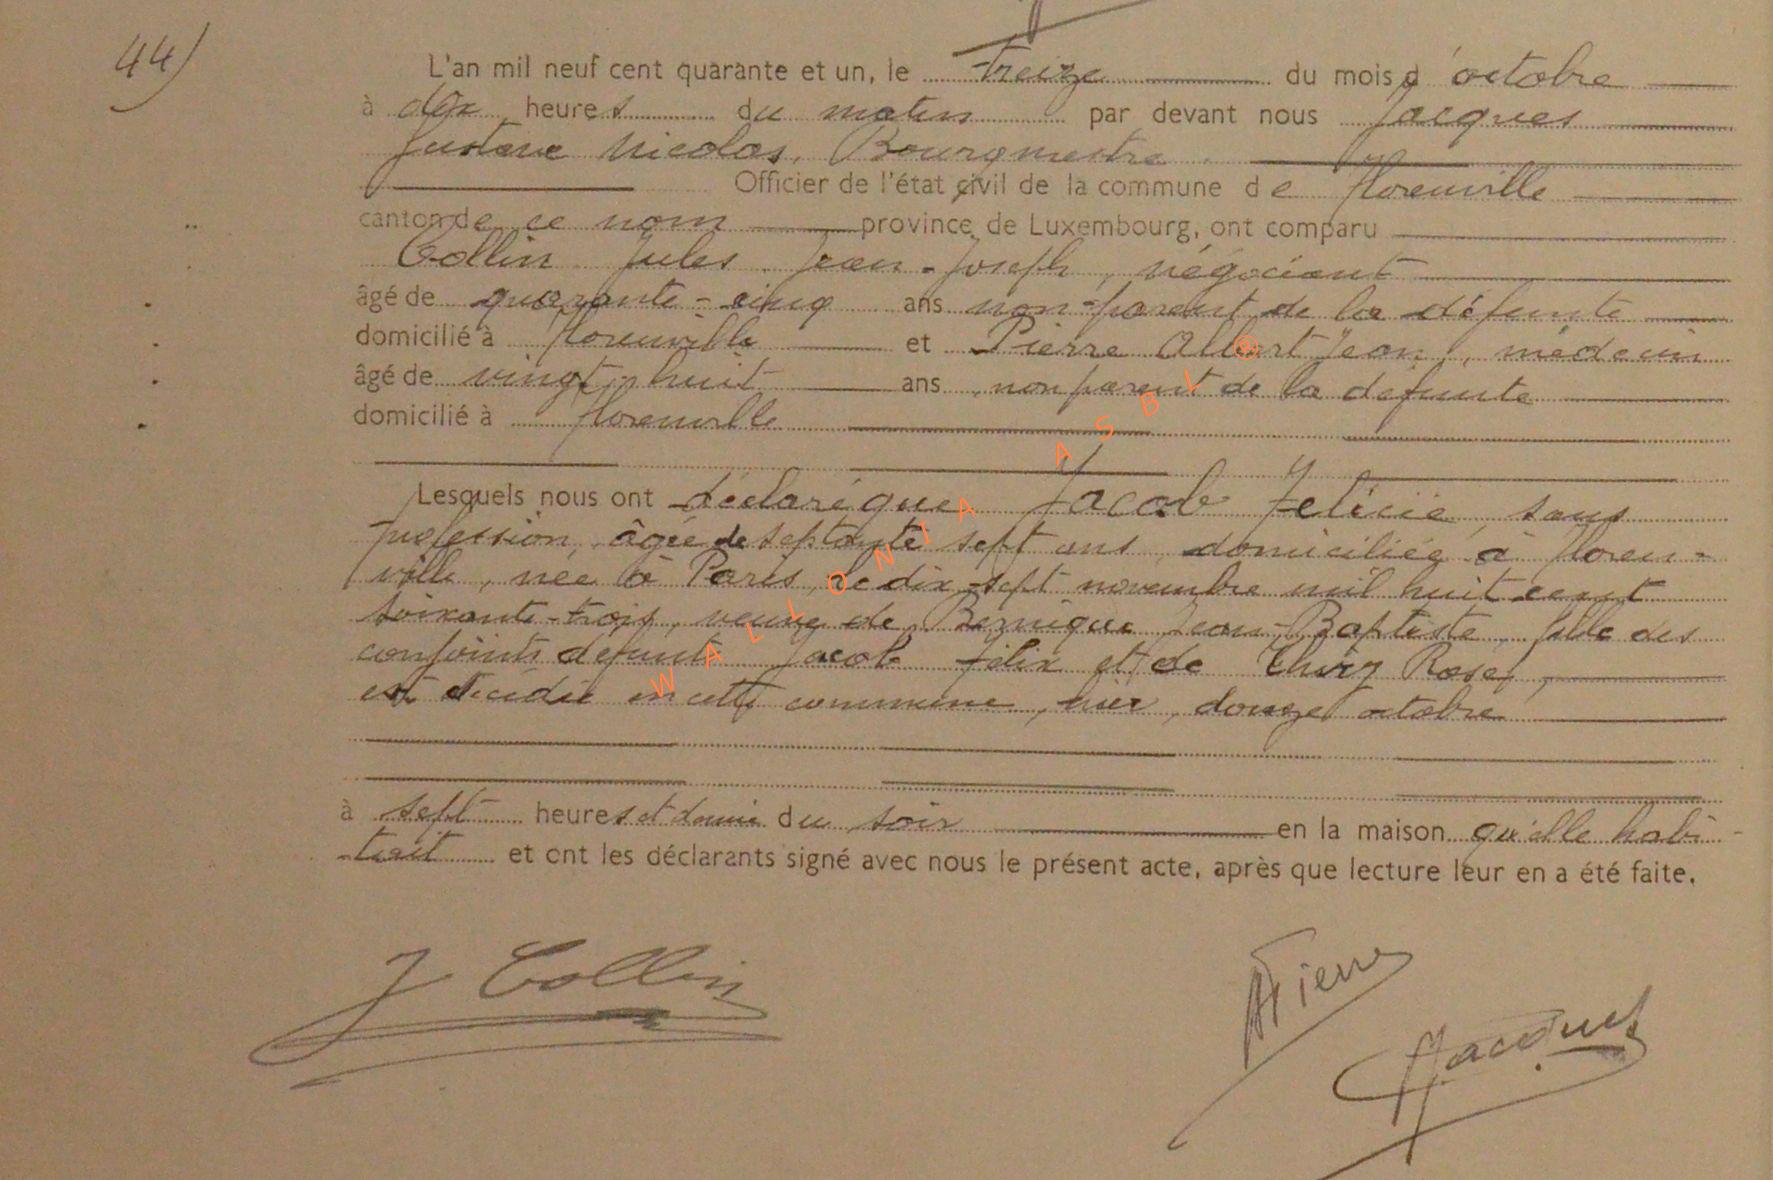 44)
L'an mil neuf cent quarante et un, le treize du mois d'octobre
à dix heures du matin par devant nous Jacques
Gustave Nicolas, Bourgmestre.
Officier de l'état civil de la commune de Florenville
canton de ce nom province de Luxembourg, ont comparu
Collin Jules Jean-Joseph, négociant
âgé de quarante-cinq ans non-parent de la défunte
domicilié à Florenville et Pierre Albert Jean, médecin
âgé de vingt-huit ans, non parent de la défunte
domicilié à Florenville
Lesquels nous ont déclaré que Jacob Félicie, sans
profession, âgée de septante sept ans, domiciliée à Floren-
ville, née à Paris, le dix-sept novembre mil huit cent
soixante-trois, veuve de Bernique Jean-Baptiste, fille des
conjoints défunts Jacob Félix et de Thiry Rose,
est décédée en cette commune, hier, douze octobre
à sept heures et demie du soir en la maison qu'elle habi-
tait et ont les déclarants signé avec nous le présent acte, après que lecture leur en a été faite.
J Collin
APierre
GJacques
WALLONIA ASBL ®